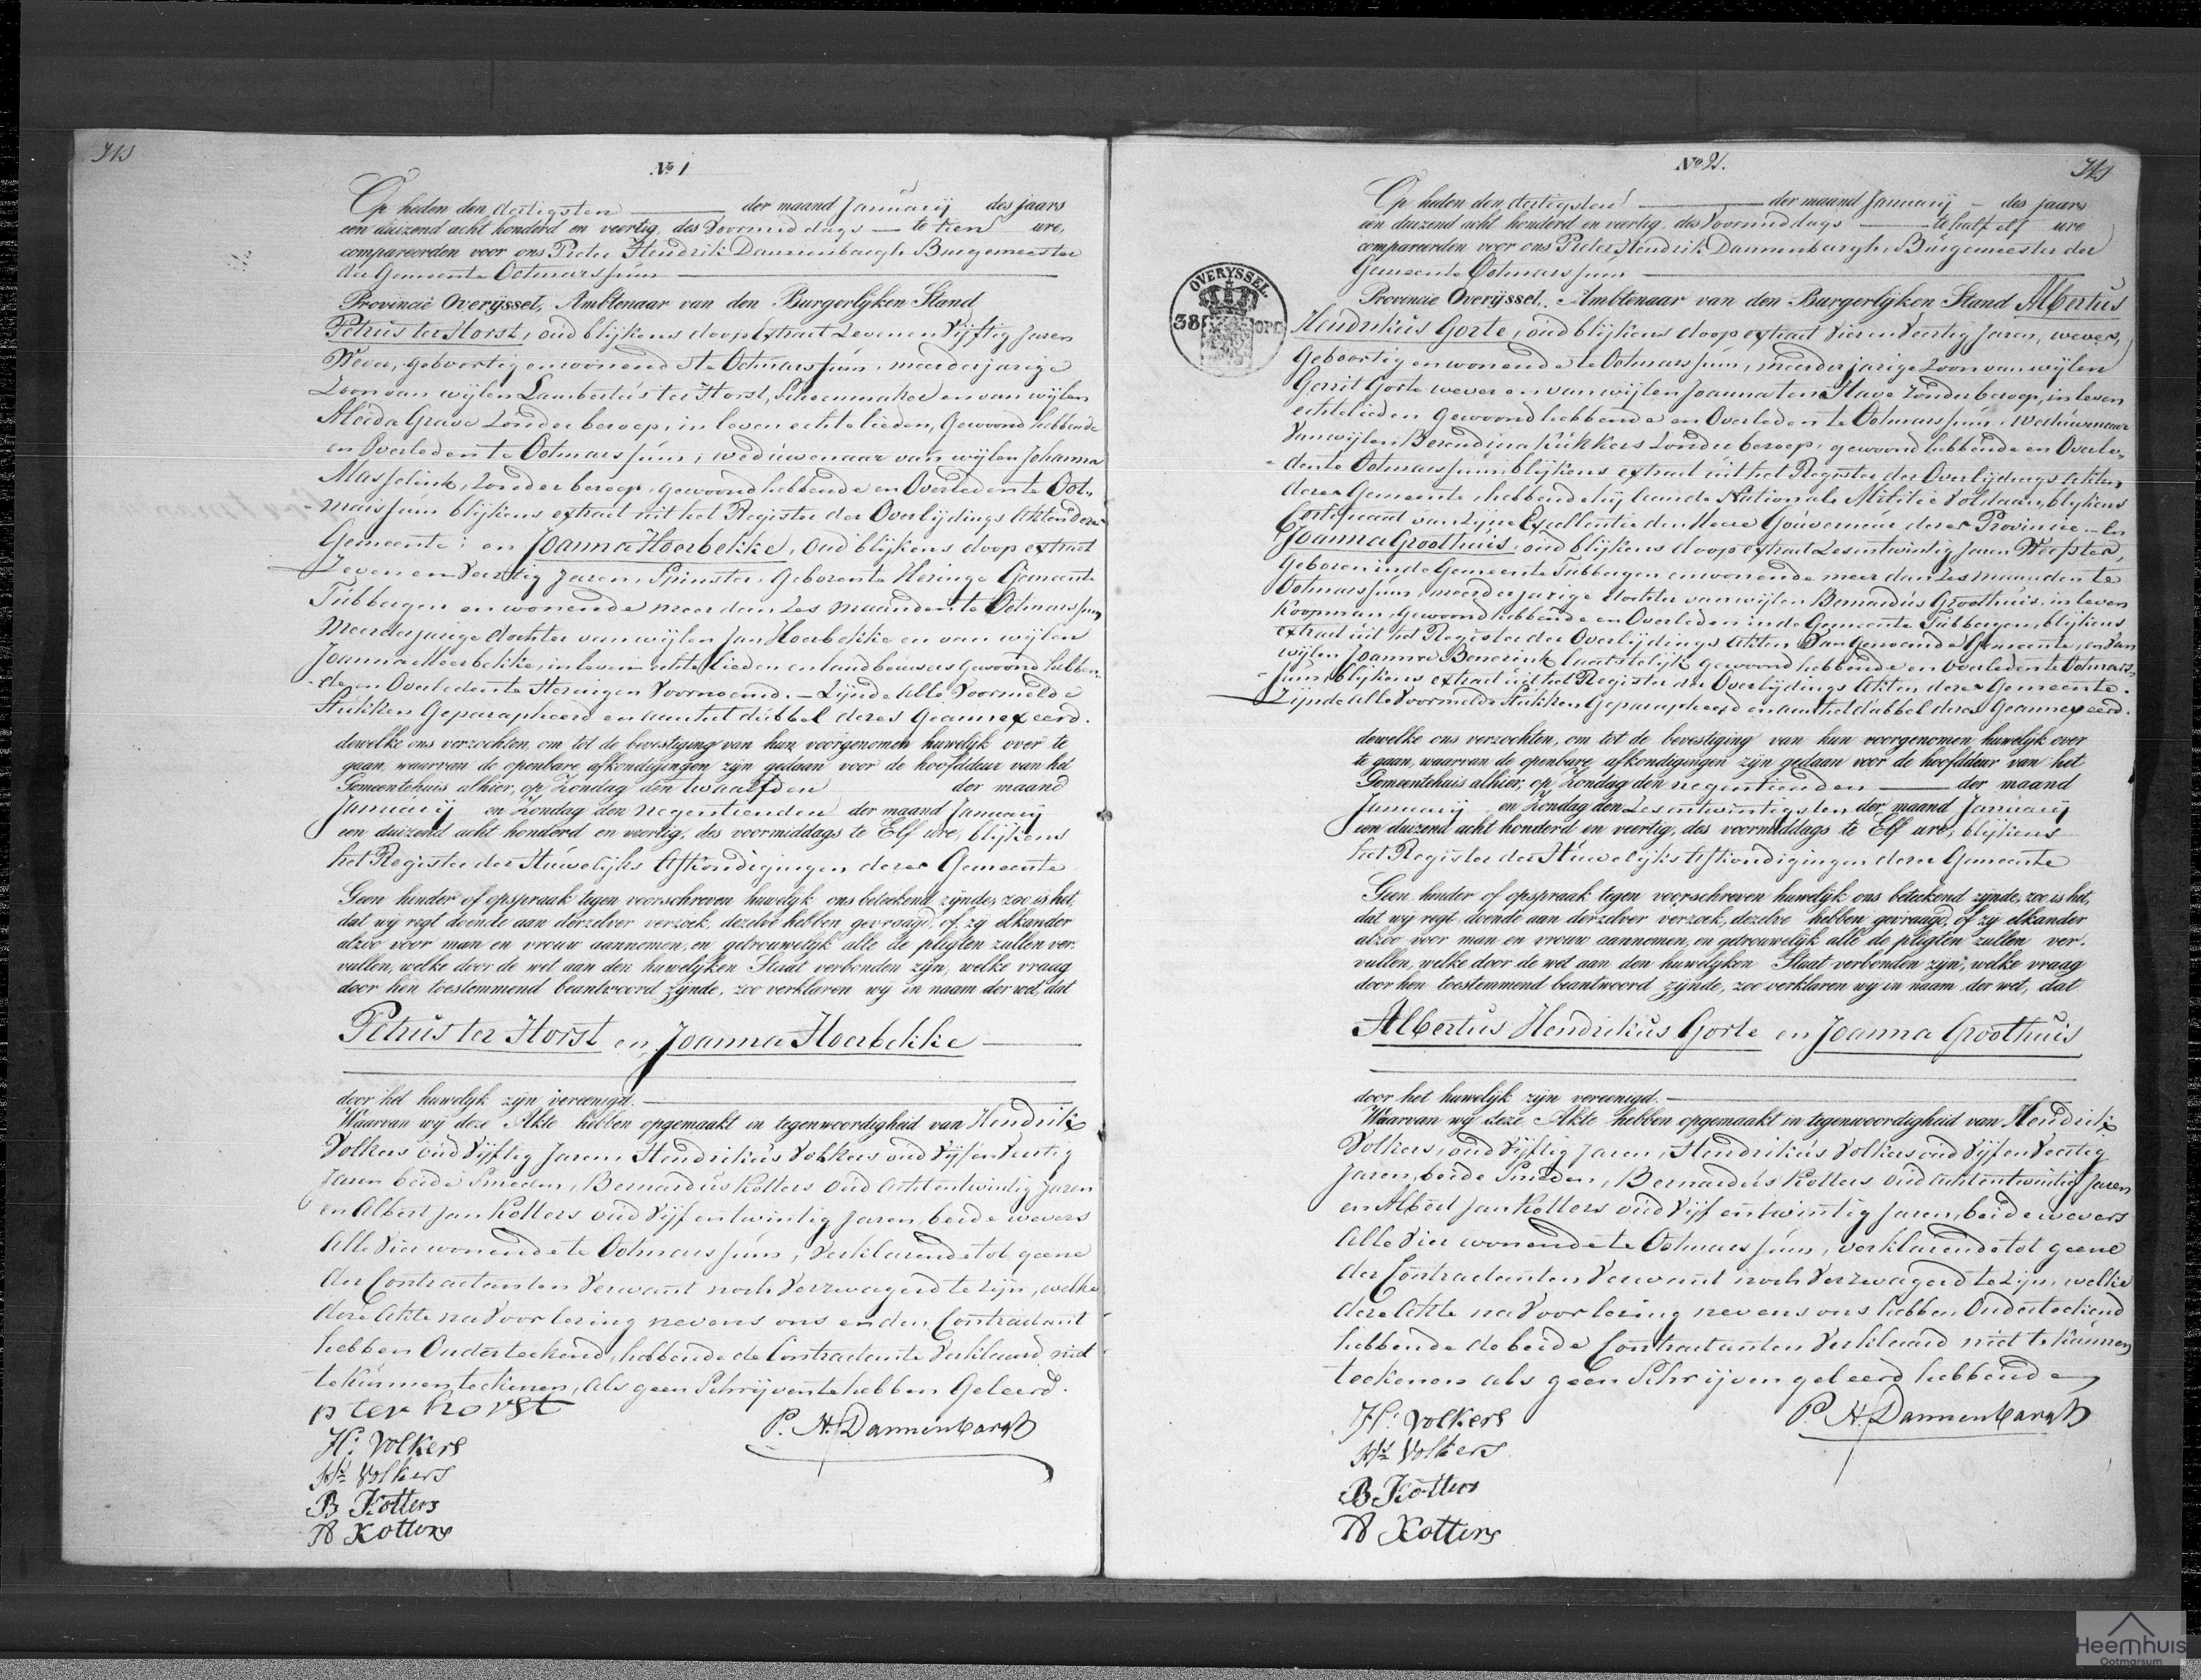 No 1
Op heden den dertigsten der maand Januarij des jaars
een duizend acht honderd en veertig, des Voormiddags te tien ure,
compareerden voor ons Pieter Hendrik Dannenbargh Burgemeester
der Gemeente Ootmarssum
Provincie Overijssel, Ambtenaar van den Burgerlijken Stand
Petrus ter Horst, oud blijkens doop Extract Zeven en Vijftig Jaren
Wever, geboortig en wonende te Ootmarssum, meerderjarige
Zoon van wijlen Lambertus ter Horst, Schoenmaker en van wijlen
Aleida Grave Zonder beroep, in leven echtelieden, Gewoond hebbende
en Overleden te Ootmarssum, weduwenaar van wijlen Johanna
Masselink, Zonder beroep, gewoond hebbende en Overleden te Oot-
marssum blijkens extract uit het Register der Overlijdings Akten dezer
Gemeente; en Joanna Hoerbekke, Oud blijkens doop extract
Zeven en Veertig Jaren, Spinster, Geboren te Heringe Gemeente
Tubbergen en wonende meer dan Zes maanden te Ootmarssum
Meerderjarige dochter van wijlen Jan Hoerbekke en van wijlen
Joanna Meerbekke, in leven echtelieden en landbouwers Gewoond hebben-
de en Overleden te Heringen Voornoemd. - Zijnde Alle Voormelde
Stukken Geparapheerd en aan het dubbel dezes Geannexeerd.
dewelke ons verzochten, om tot de bevestiging van hun voorgenomen huwelijk over te
gaan, waarvan de openbare afkondigingen zijn gedaan voor de hoofddeur van het
Gemeentehuis alhier, op Zondag den twaalfden der maand
Januarij en Zondag den Negentienden der maand Januarij
een duizend acht honderd en veertig, des voormiddags te Elf ure, blijkens
het Register der Huwelijks Afkondigingen dezer Gemeente
Geen hinder of opspraak tegen voorschreven huwelijk ons beteekend zijnde, zoo is het,
dat wij regt doende aan derzelver verzoek, dezelve hebben gevraagd, of zij elkander
alzoo voor man en vrouw aannemen, en getrouwelijk alle de pligten zullen ver-
vullen, welke door de wet aan den huwelijken Staat verbonden zijn, welke vraag
door hen toestemmend beantwoord zijnde, zoo verklaren wij in naam der wet, dat
Petrus ter Horst en Joanna Hoerbekke
door het huwelijk zijn vereenigd.
Waarvan wij deze Akte hebben opgemaakt in tegenwoordigheid van Hendrik
Volkers oud Vijftig Jaren, Hendrikus Volkers oud Vijf en Veertig
Jaren beide Smeden, Bernardus Kotters Oud Acht en twintig Jaren
en Albert Jan Kotters oud Vijf en twintig Jaren, beide wevers
Alle Vier wonende te Ootmarssum, Verklarende tot geene
der Contractanten Verwant noch Verzwagerd te Zijn, welke
deze Akte na Voorlezing nevens ons en den Contractant
hebben Onderteekend, hebbende de Contractante Verklaard niet
te kunnen teekenen, als geen Schrijven te hebben Geleerd.
p ter horst
P. H. Dannenbargh
H: Volkers
Hs Volkers
B Kotters
A Kotters
No 2.
Op heden den dertigsten der maand Januarij des jaars
een duizend acht honderd en veertig, des Voormiddags te half elf ure
compareerden voor ons Pieter Hendrik Dannenbargh, Burgemeester der
Gemeente Ootmarssum
OVERYSSEL.
38 OPC
Provincie Overijssel, Ambtenaar van den Burgerlijken Stand Albertus
Hendrikus Gorte, oud blijkens doop extract Vier en Veertig Jaren, wever,
Geboortig en wonende te Ootmarssum, meerderjarige Zoon van wijlen
Gerrit Gorte wever en van wijlen Joanna ten Have Zonder beroep, in leven
echtelieden gewoond hebbende en Overleden te Ootmarssum, Weduwenaar
Van wijlen Berendina Kukkers Zonder beroep, gewoond hebbende en Overle-
den te Ootmarssum, blijkens extract uit het Register der Overlijdings Akten
dezer Gemeente, hebbende hij aan de Nationale Militie Voldaan, blijkens
Certificaat van Zijne Excellentie den Heere Gouverneur dezer Provincie. - En
Joanna Groothuis, oud blijkens doop extract Zes en twintig Jaren Weefster,
Geboren in de Gemeente Tubbergen en wonende meer dan Zes maanden te
Ootmarssum, meerderjarige dochter van wijlen Bernardus Groothuis, in leven
Koopman, gewoond hebbende en Overleden in de Gemeente Tubbergen, blijkens
extract uit het Register der Overlijdings Akten Van Genoemde Gemeente, en Van
wijlen Joanna Benerink laatstelijk gewoond hebbende en overleden te Ootmars-
sum, blijkens extract uit het Register der Overlijdings Akten dezer Gemeente.
Zijnde Alle Voormelde Stukken Geparapheerd en aan het dubbel dezes Geannexeerd.
dewelke ons verzochten, om tot de bevestiging van hun voorgenomen huwelijk over
te gaan, waarvan de openbare afkondigingen zijn gedaan voor de hoofddeur van het
Gemeentehuis alhier, op Zondag den negentienden der maand
Januarij en Zondag den Zesentwintigsten der maand Januarij
een duizend acht honderd en veertig, des voormiddags te Elf ure, blijkens
het Register der Huwelijks Afkondigingen dezer Gemeente
Geen hinder of opspraak tegen voorschreven huwelijk ons beteekend zijnde, zoo is het,
dat wij regt doende aan derzelver verzoek, dezelve hebben gevraagd, of zij elkander
alzoo voor man en vrouw aannemen, en getrouwelijk alle de pligten zullen ver-
vullen, welke door de wet aan den huwelijken Staat verbonden zijn, welke vraag
door hen toestemmend beantwoord zijnde, zoo verklaren wij in naam der wet, dat
Albertus Hendrikus Gorte en Joanna Groothuis
door het huwelijk zijn vereenigd.
Waarvan wij deze Akte hebben opgemaakt in tegenwoordigheid van Hendrik
Volkers, oud Vijftig Jaren, Hendrikus Volkers oud Vijf en Veertig
Jaren, beide Smeden, Bernardus Kotters Oud achtentwintig Jaren
en Albert Jan Kotters oud Vijf en twintig Jaren, beide wevers
Alle Vier wonende te Ootmarssum, verklarende tot geene
der Contractanten Verwant noch Verzwagerd te Zijn, welke
deze Akte na Voorlezing nevens ons hebben Onderteekend
hebbende de beide Contractanten Verklaard niet te kunnen
teekenen als geen Schrijven geleerd hebbende
H: Volkers
P. H. Dannenbargh
Hs Volkers
B Kotters
A Kotters
Heemhuis
Ootmarsum